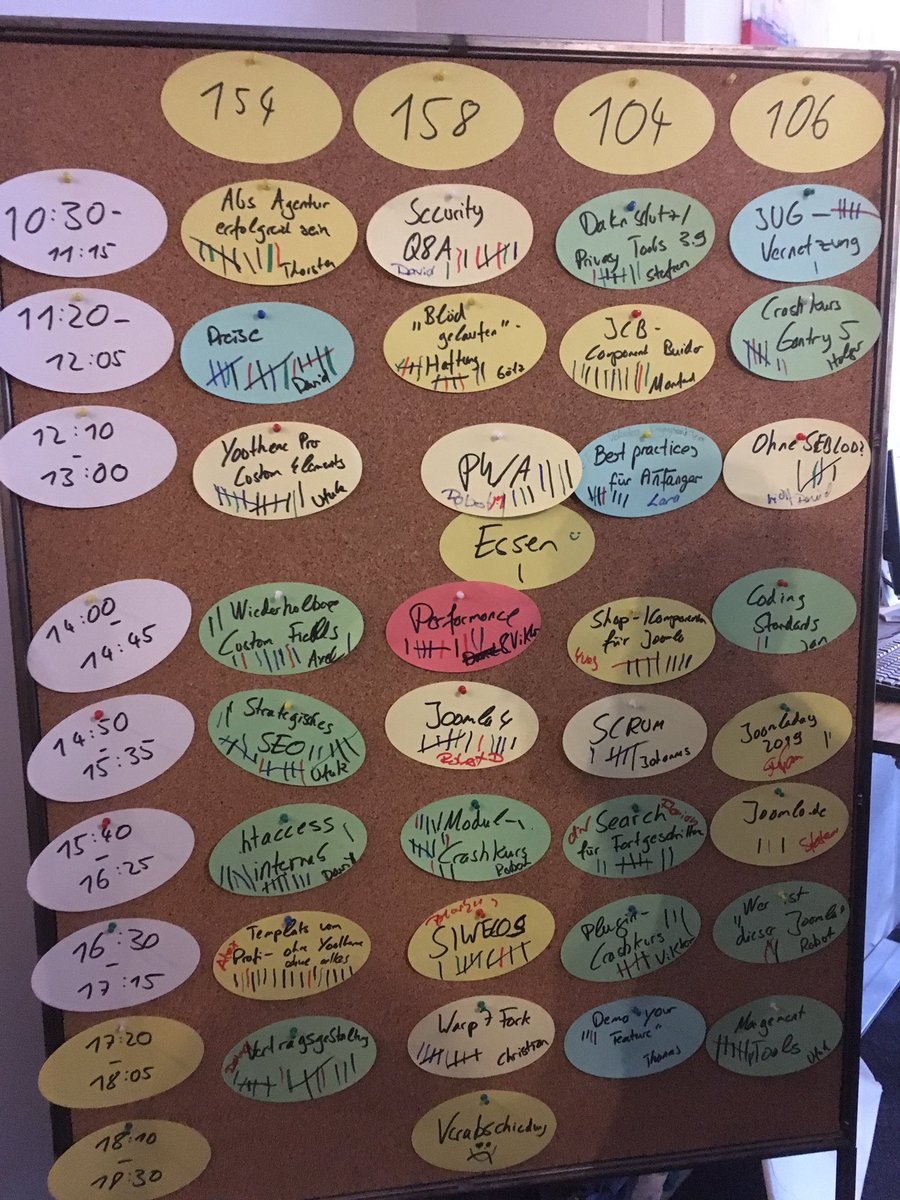 154
158
104
106
10:30-
11:15
Als Agentur
erfolgreich sein
Thorsten
Security
Q&A
David
Datenschutz/
Privacy Tools 3.9
Stefan
JUG -
Vernetzung
11:20-
12:05
Preise
David
„Blöd
gelaufen"-
Haftung
Götz
JCB-
Component Builder
Manfred
Crashkurs
Gantry 5
Holger
12:10
-
13:00
Yootheme Pro
Custom Elements
Utuk
PWA
Robert
Best practices
für Anfänger
Lara
Ohne SEBLOD?
David
Essen
14:00
-
14:45
Wiederholbare
Custom Fields
Axel
Performance
& Viktor
Shop-Komponenten
für Joomla
Yves
Coding
Standards
Jan
14:50
-
15:35
Strategisches
SEO
Utuk
Joomla 4
Robert D
SCRUM
Johannes
Joomladay
2019
15:40
-
16:25
htaccess
internas
David
Modul-
Crashkurs
Robot
Search
für Fortgeschritten
Joomla.de
Stefan
16:30
-
17:15
Template vom
Profi- ohne Yootheme
ohne alles
Alex
SIWECOS
Plugin-
Crashkurs
Viktor
„Wer ist
dieser Joomla"
Robot
17:20
-
18:05
Vertragsgestaltung
Warp 7 Fork
Christian
„Demo your
Feature"
Thomas
Mangement
Tools
Utuk
18:10
-
18:30
Verabschiedung